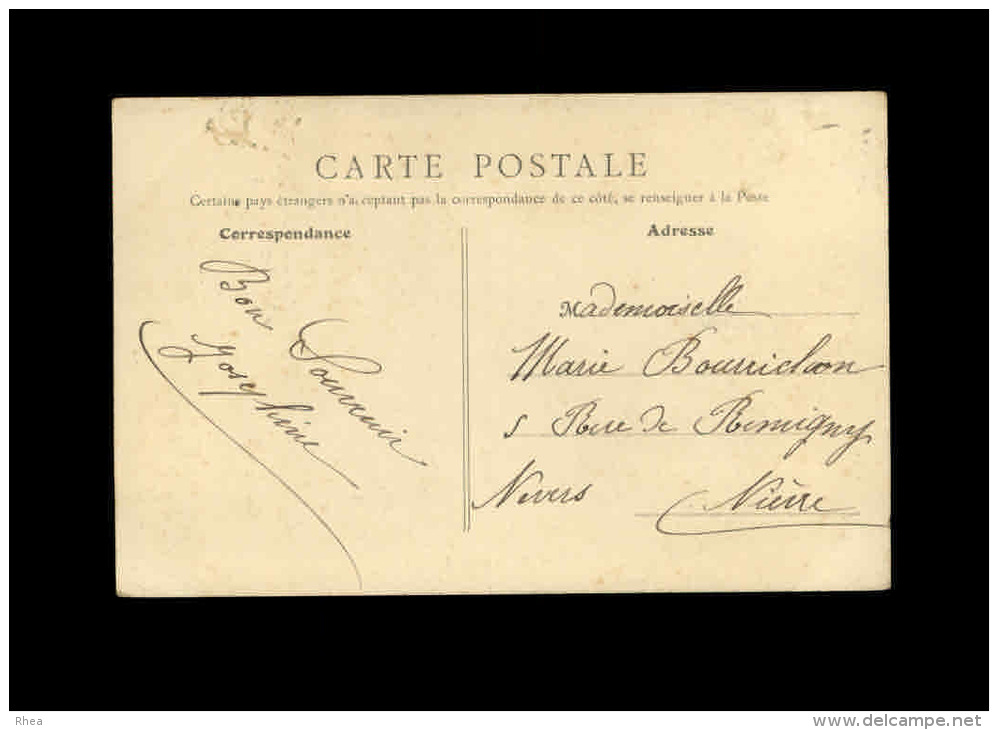 CARTE POSTALE
Certains pays étrangers n'acceptant pas la correspondance de ce côté, se renseigner à la Poste
Correspondance
Bon
Souvenir
Josephine
Adresse
Mademoiselle
Marie Bourrichon
5 Rue de Remigny
Nevers Nièvre
Rhea
www.delcampe.net